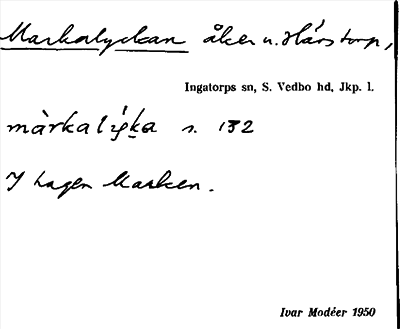 Markalyckan åker u. Hårstorp,
Ingatorps sn, S. Vedbo hd, Jkp. l.
màrkalýka s. 132
I hagen Marken.
Ivar Modéer 1950